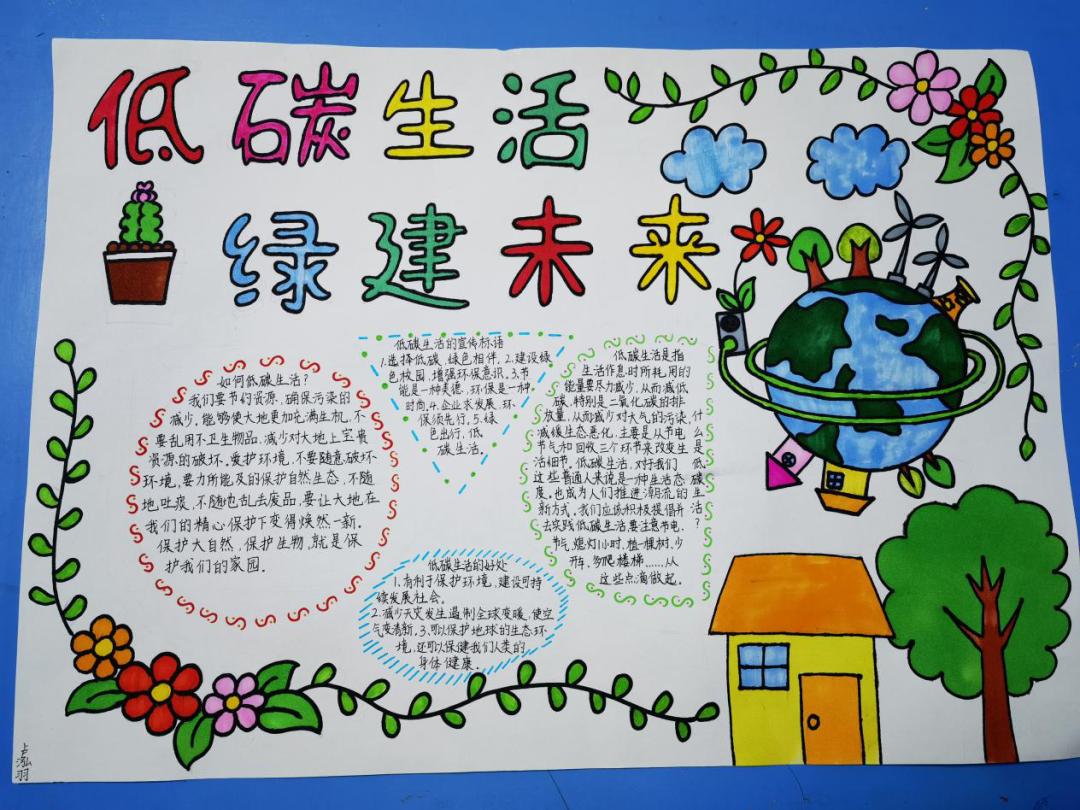 低碳生活
绿建未来
如何低碳生活?
我们要节约资源,确保污染的
减少,能够使大地更加充满生机,不
要乱用不卫生物品,减少对大地上宝贵
资源的破坏。爱护环境,不要随意破坏
环境,要力所能及的保护自然生态,不随
地吐痰,不随地乱丢废品,要让大地在
我们的精心保护下变得焕然一新。
保护大自然,保护生物,就是保
护我们的家园。
低碳生活的宣传标语
1.选择低碳,绿色相伴.2.建设绿
色校园,增强环保意识.3.节
能是一种美德,环保是一种
时尚.4.企业求发展,环
保须先行.5.绿
色出行,低
碳生活。
低碳生活的好处
1.有利于保护环境,建设可持
续发展社会。
2.减少天灾发生遏制全球变暖,使空
气变清新。3.可以保护地球的生态环
境,还可以保健我们人类的
身体健康。
什么是低碳生活?
低碳生活是指
生活作息时所耗用的
能量要尽力减少,从而减低
碳,特别是二氧化碳的排
放量,从而减少对大气的污染,
减缓生态恶化,主要是从节电
节气和回收三个环节来改变生
活细节。低碳生活,对于我们
这些普通人来说是一种生活态
度。也成为人们推进潮流的
新方式。我们应该积极提倡并
去实践低碳生活,要注意节电,
节气,熄灯1小时,植一棵树,少
开车,多爬楼梯……从
这些点滴做起。
卢泓羽